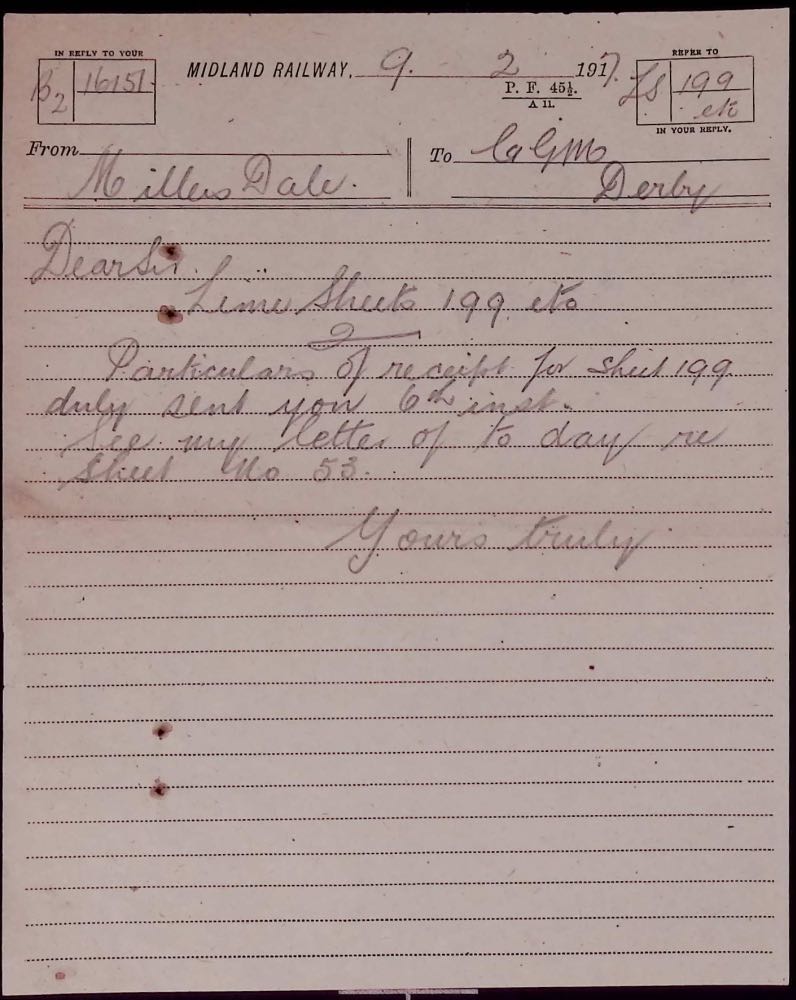 IN REPLY TO YOUR
B2 16151
MIDLAND RAILWAY, 9. 2 1917
P. F. 45½.
A 11.
REFER TO
LS 199
etc
IN YOUR REPLY.
From Millers Dale.
To
Derby
Dear Sir.
Lime Sheets 199 etc
Particulars of receipt for sheet 199
duly sent you 6th inst.
See my letter of to day re
Sheet No 53.
Yours truly